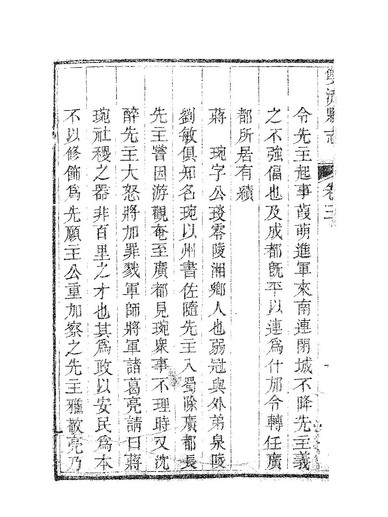 雙流縣志 卷三
令先主起事葭萌進軍來南連閉城不降先主義
之不強偪也及成都旣平以連爲什邡令轉任廣
都所居有績
蔣琬字公琰零陵湘鄉人也弱冠與外弟泉陵
劉敏俱知名琬以州書佐隨先主入蜀除廣都長
先主嘗因游觀奄至廣都見琬衆事不理時又沈
醉先主大怒將加罪戮軍師將軍諸葛亮請曰蔣
琬社稷之器非百里之才也其爲政以安民爲本
不以修飾爲先願主公重加察之先主雅敬亮乃